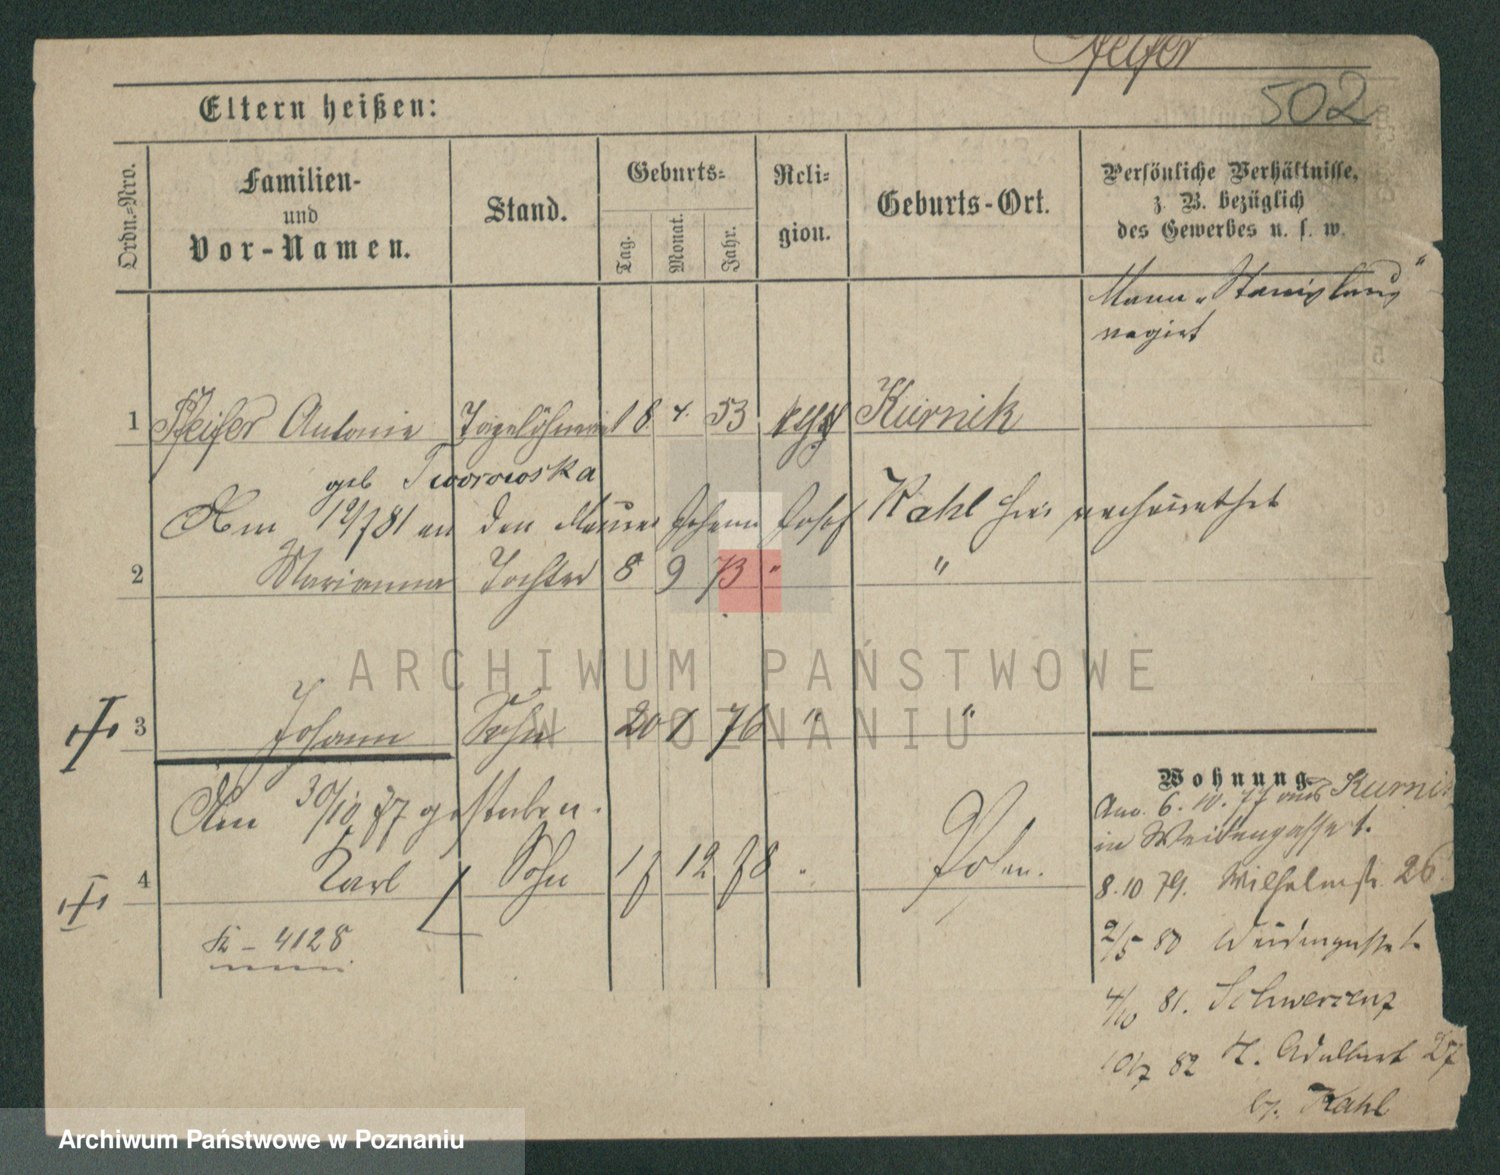 Pfeifer
502
Eltern heißen:
Ordn.-Nro.
Familien-
und
Vor-Namen.
Stand.
Geburts-
Tag.
Monat.
Jahr.
Reli-
gion.
Geburts-Ort.
Persönliche Verhältnisse,
z. B. bezüglich
des Gewerbes u. s. w.
Mann „Stanislaus“
vagirt
1 Pfeifer Antonie Tagelöhnerin 18 4. 53 Kurnik
geb Tworowska
Am 19/7 81 an den Maurer Johann Josef Kahl hier verheirathet
2 Marianna Tochter 8 9 73 " "
3 Johann Sohn 20 1 76 " "
Am 30/10 77 gestorben.
4 Karl Sohn 17 12 78 " Posen.
4128
Wohnung.
Anz. 6. 10. 77 aus Kurnik
in Weidengasse 1.
8. 10 79. Wilhelmstr. 26.
2/5 80 Weidengasse 1.
4/10 81. Schwersenz
10/7 82 St. Adalbert 27
b. Kahl
ARCHIWUM PAŃSTWOWE
W POZNANIU
Archiwum Państwowe w Poznaniu